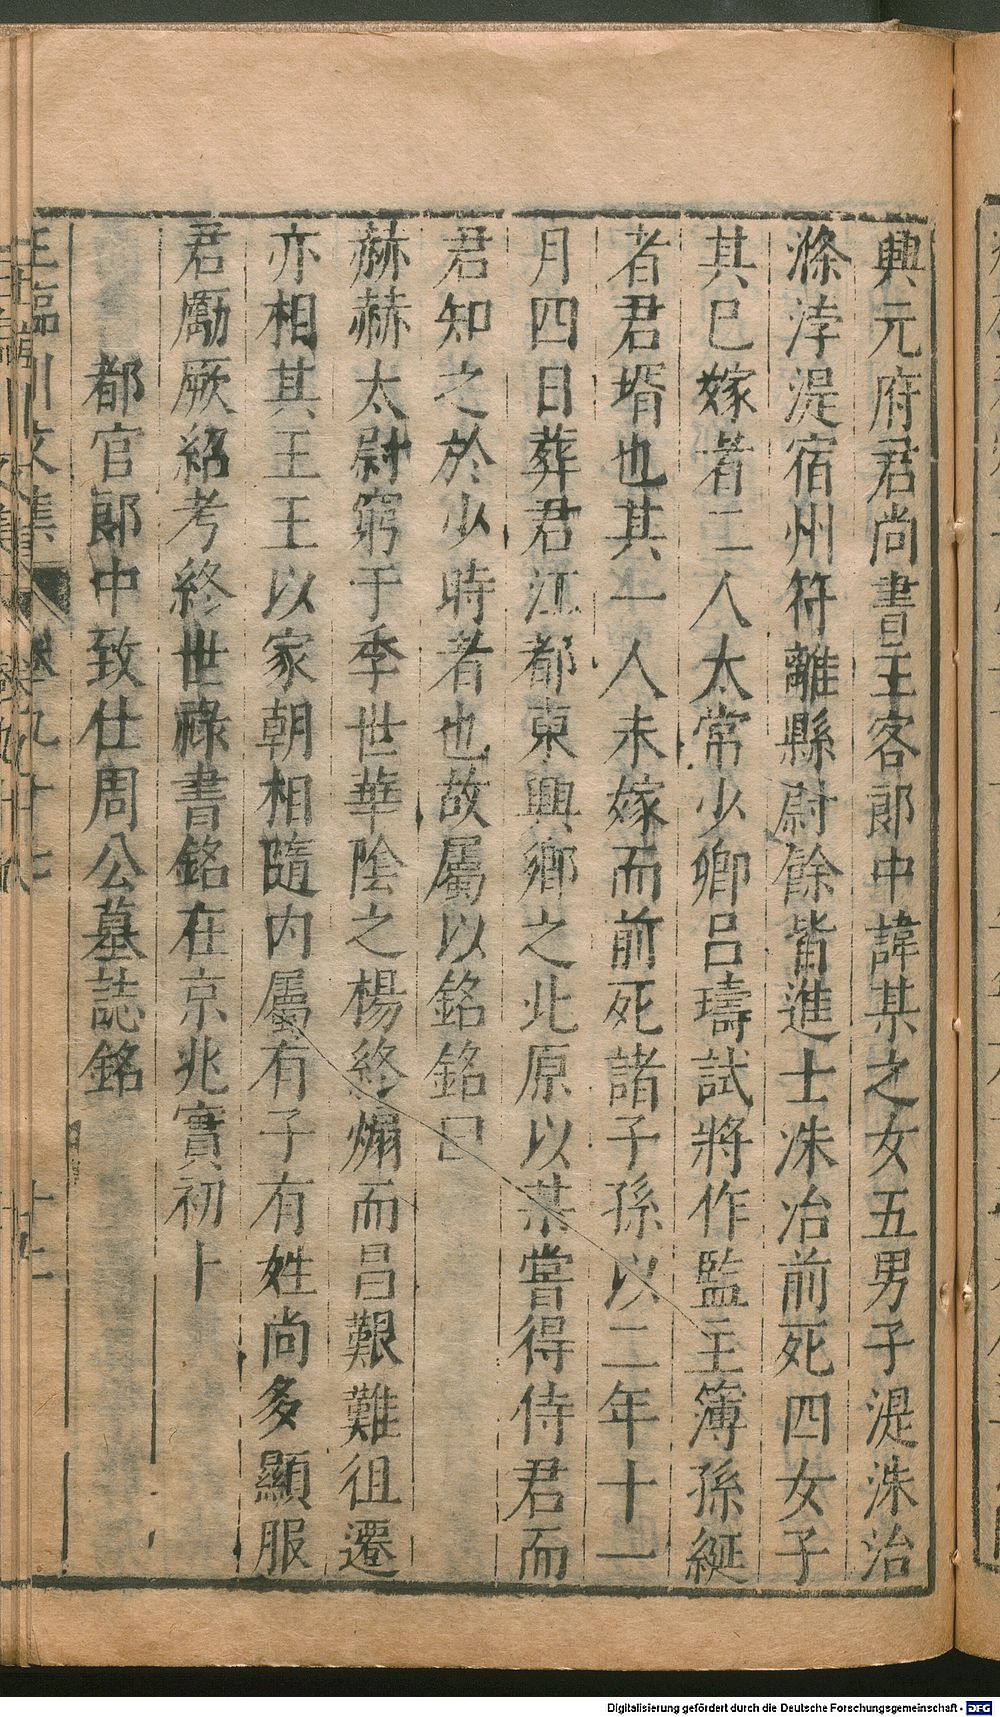 興元府君尚書主客郎中諱某之女五男子湜洙治
滌浡湜宿州符離縣尉餘皆進士洙治前死四女子
其已嫁者二人太常少卿呂璹試將作監主簿孫綖
者君壻也其一人未嫁而前死諸子孫以二年十一
月四日葬君江都東興鄉之北原以某嘗得侍君而
君知之於少時者也故屬以銘銘曰
赫赫太尉窮于季世華陰之楊終煽而昌艱難徂遷
亦相其王王以家朝相隨内屬有子有姓尚多顯服
君勵厥紹考終世祿書銘在京兆實初卜
都官郎中致仕周公墓誌銘
王臨川文集 卷九十七
Digitalisierung gefördert durch die Deutsche Forschungsgemeinschaft - DFG